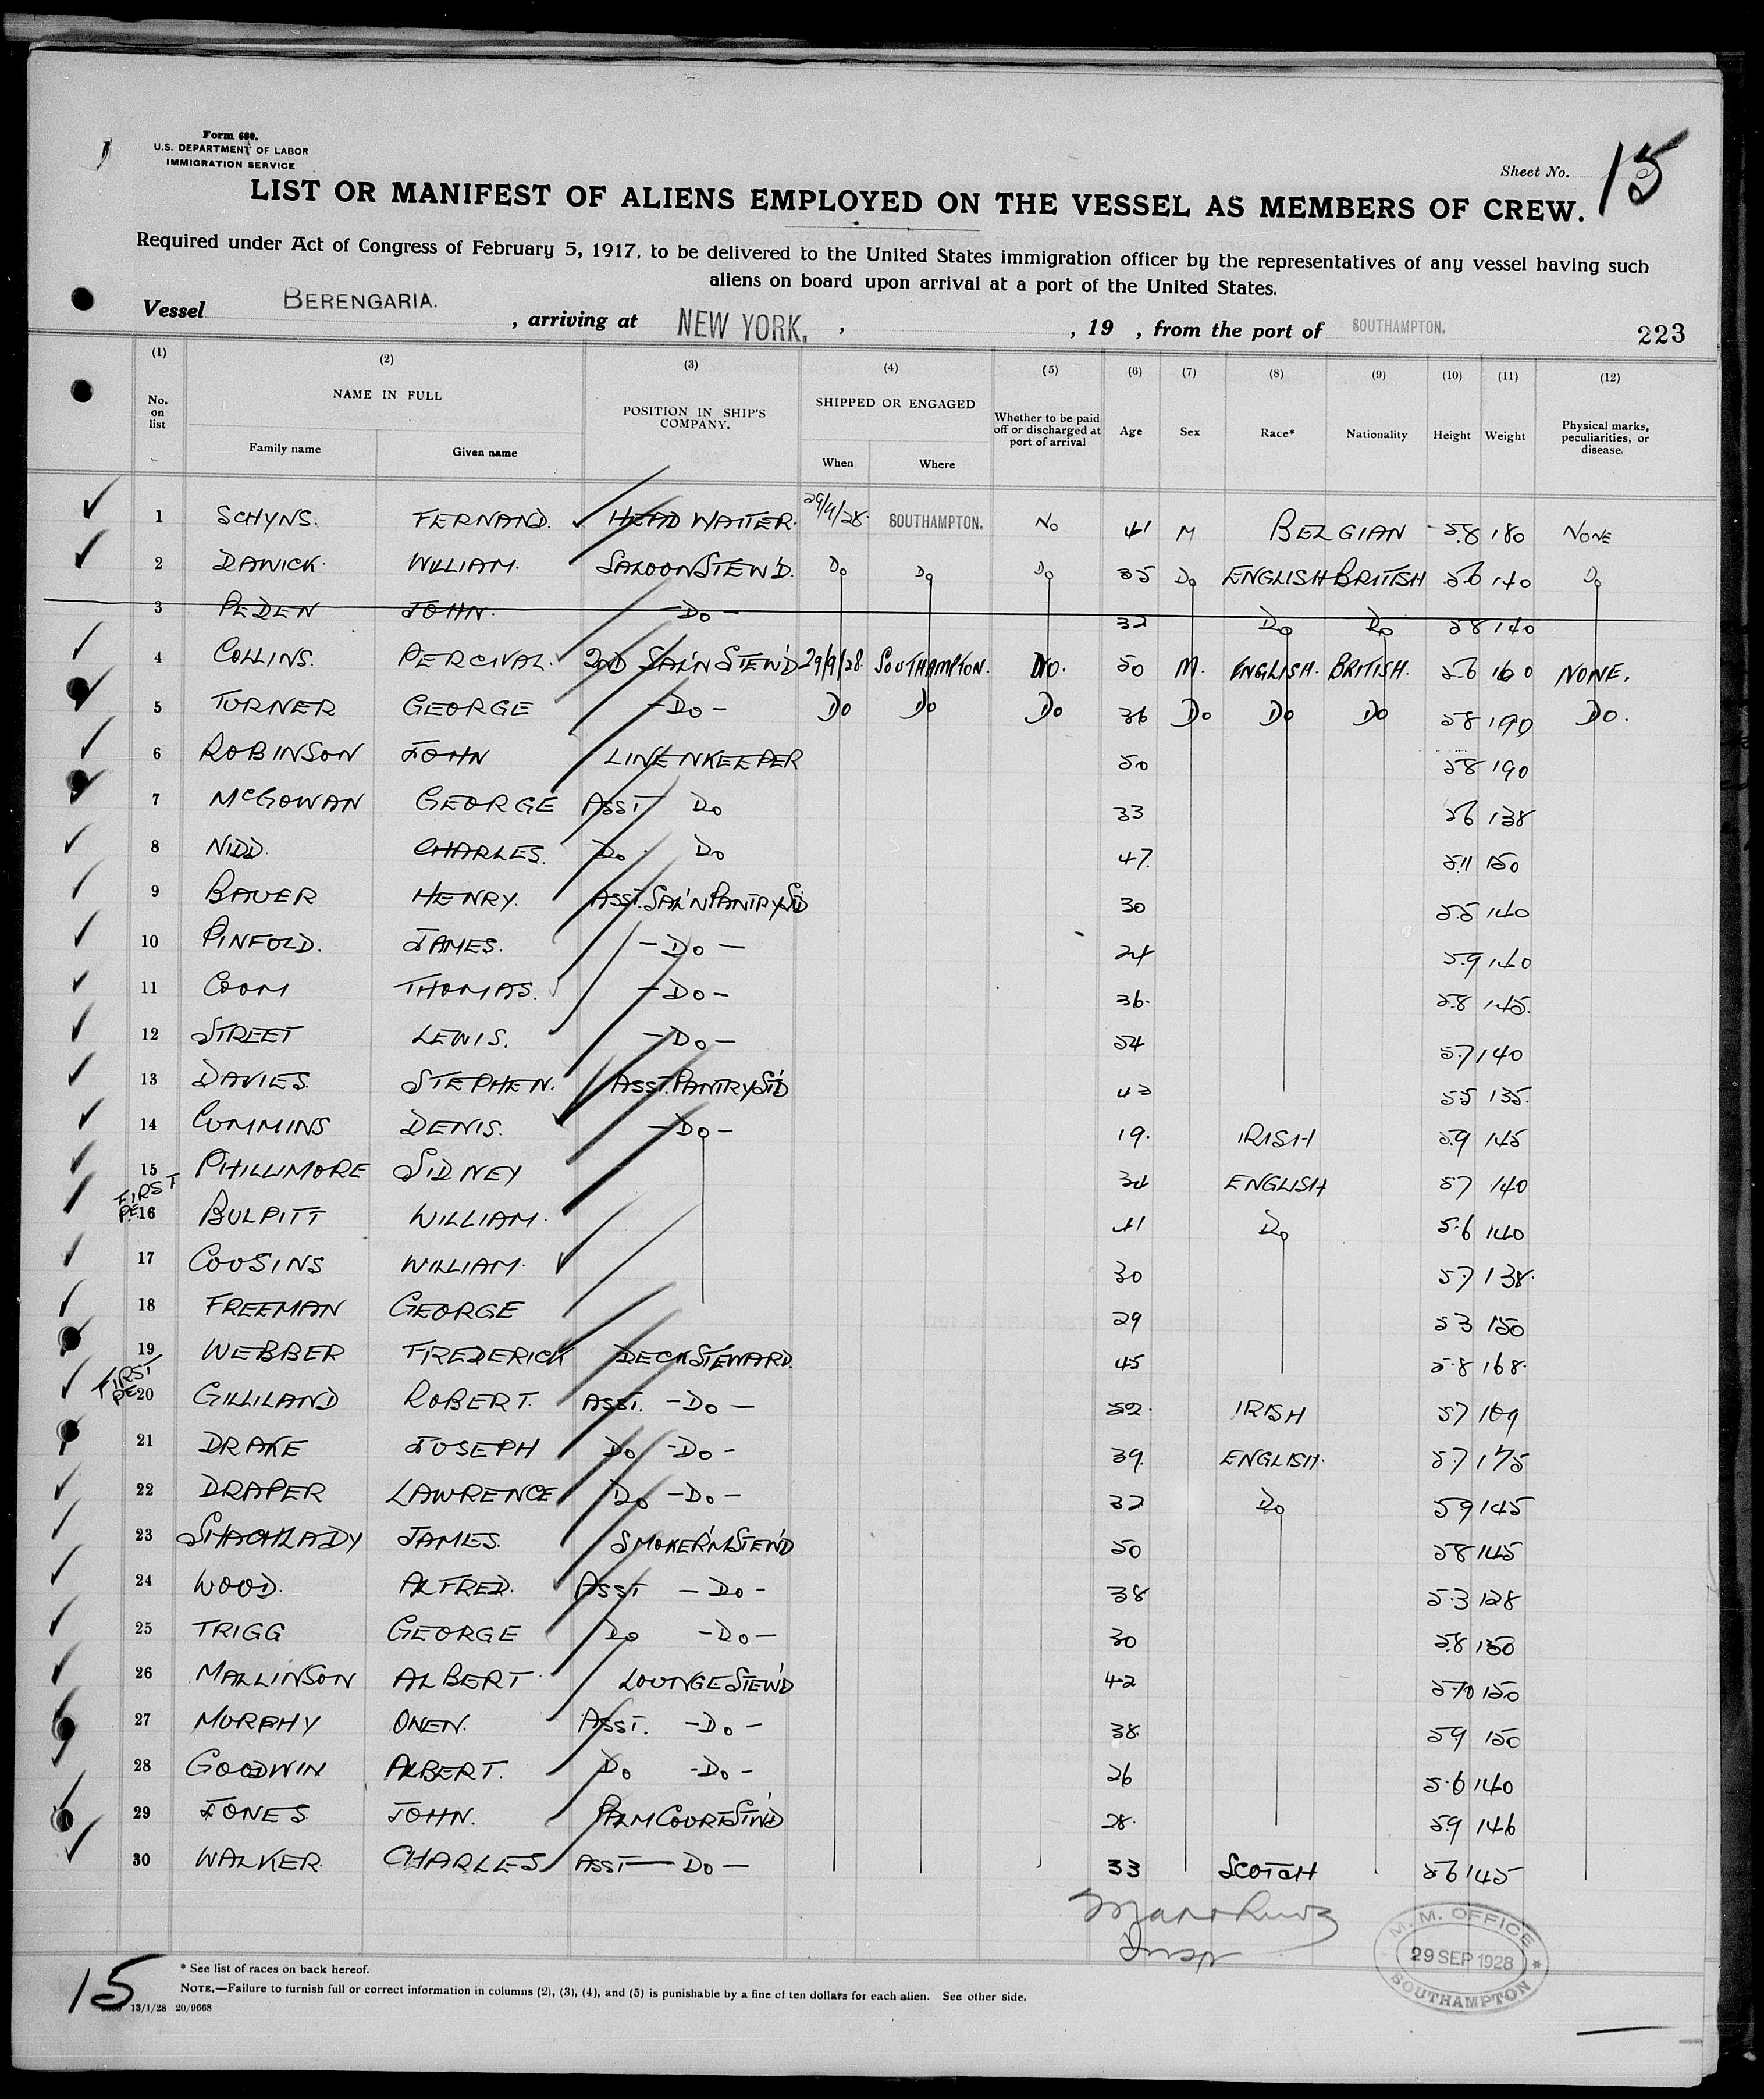 Form 680.
U.S. DEPARTMENT OF LABOR
IMMIGRATION SERVICE
Sheet No. 15
LIST OR MANIFEST OF ALIENS EMPLOYED ON THE VESSEL AS MEMBERS OF CREW.
Required under Act of Congress of February 5, 1917, to be delivered to the United States immigration officer by the representatives of any vessel having such
aliens on board upon arrival at a port of the United States.
Vessel BERENGARIA. , arriving at NEW YORK, , , 19 , from the port of SOUTHAMPTON. 223
(1) (2) (3) (4) (5) (6) (7) (8) (9) (10) (11) (12)
No. on list NAME IN FULL POSITION IN SHIP'S COMPANY. SHIPPED OR ENGAGED Whether to be paid off or discharged at port of arrival Age Sex Race* Nationality Height Weight Physical marks, peculiarities, or disease.
Family name Given name When Where
1 SCHYNS. FERNAND. HEAD WAITER. 29/9/28. SOUTHAMPTON. No 41 M BELGIAN 5.8 180 NONE
2 DAWICK. WILLIAM. SALOON STEW'D. Do Do Do 35 Do ENGLISH BRITISH 5.6 140 Do
3 PEDEN JOHN. -Do- 32 Do Do 5.8 140
4 COLLINS. PERCIVAL. 2ND SAL'N STEW'D 29/9/28. SOUTHAMPTON. NO. 50 M. ENGLISH. BRITISH. 5.6 160 NONE.
5 TURNER GEORGE -Do- Do Do Do 36 Do Do Do 5.8 190 Do.
6 ROBINSON JOHN LINENKEEPER 50 5.8 190
7 McGOWAN GEORGE ASST Do 33 5.6 138
8 NIDD. CHARLES. Do. Do 47. 5.11 150
9 BAUER HENRY. ASST. SAL'N PANTRY S'D 30 5.5 140
10 PINFOLD. JAMES. -Do- 24 5.9 140
11 COOM THOMAS. -Do- 36. 5.8 145.
12 STREET LEWIS. -Do- 54 5.7 140
13 DAVIES STEPHEN. ASST. PANTRY S'D 43 5.5 135.
14 CUMMINS DENIS. -Do- 19. IRISH 5.9 145
15 PHILLIMORE SIDNEY 34 ENGLISH 5.7 140
FIRST
16 BULPITT WILLIAM. 41 Do 5.6 140
17 COUSINS WILLIAM. 30 5.7 138.
18 FREEMAN GEORGE 29 5.3 150
19 WEBBER FREDERICK DECK STEWARD. 45 5.8 168.
FIRST
20 GILLILAND ROBERT. ASST. -Do- 52. IRISH 5.7 169
21 DRAKE JOSEPH Do -Do- 39. ENGLISH. 5.7 175
22 DRAPER LAWRENCE Do -Do- 32 Do 5.9 145
23 SHACKLADY JAMES. SMOKER'M STEW'D 50 5.8 145
24 WOOD. ALFRED. ASST -Do- 38 5.3 128
25 TRIGG GEORGE Do -Do- 30 5.8 150
26 MALLINSON ALBERT LOUNGE STEW'D 42 5.10 150
27 MURPHY OWEN. ASST. -Do- 38 5.9 150
28 GOODWIN ALBERT. Do -Do- 26 5.6 140
29 JONES JOHN. PALM COURT ST'W'D 28. 5.9 146
30 WALKER. CHARLES ASST -Do- 33 SCOTCH 5.6 145
M. M. OFFICE
29 SEP 1928
SOUTHAMPTON
15
* See list of races on back hereof.
NOTE.—Failure to furnish full or correct information in columns (2), (3), (4), and (5) is punishable by a fine of ten dollars for each alien. See other side.
13/1/28 20/9668